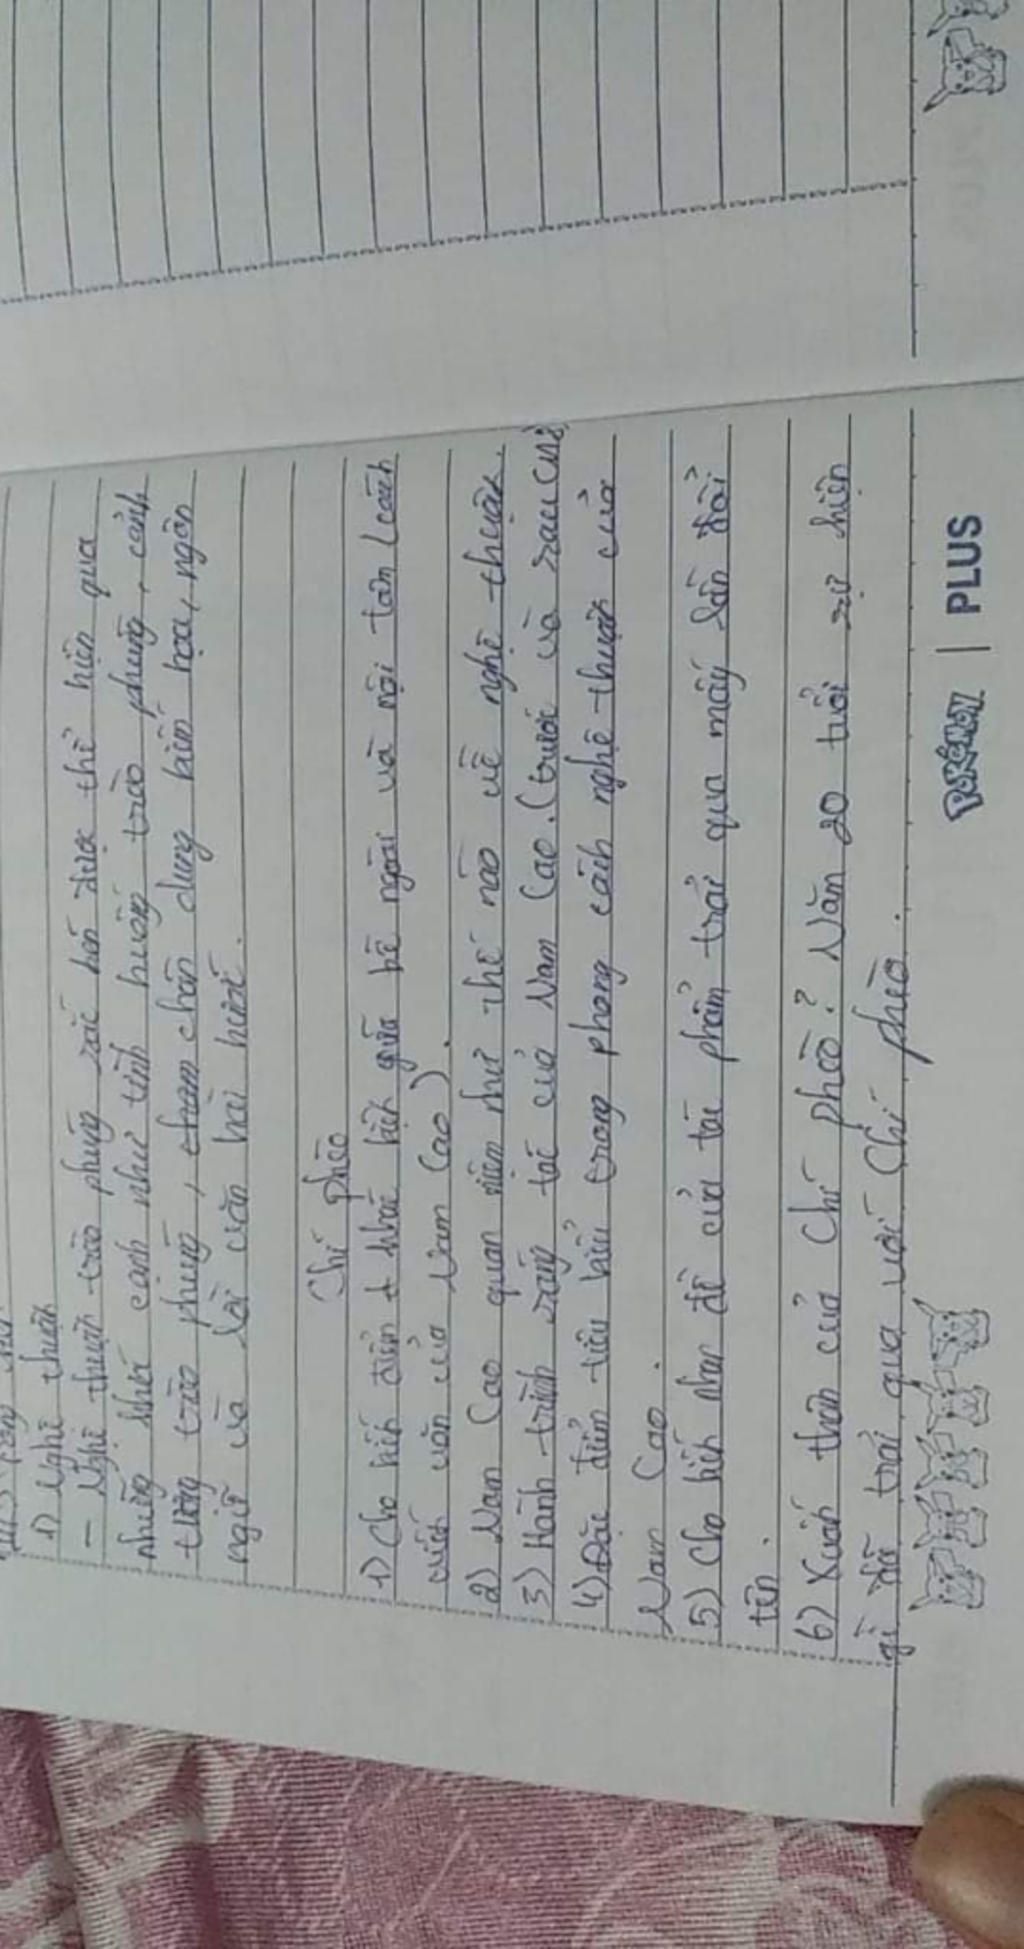 1) Nghệ thuật
- Nghệ thuật trào phúng sắc bén được thể hiện qua
nhiều khía cạnh như tình huống trào phúng, cảnh
tượng trào phúng, chân dung biếm họa, ngôn
ngữ và lời văn hài hước.
Chí phèo
1) Cho biết điểm khác biệt giữa bề ngoài và nội tâm (cách
viết văn của Nam Cao).
2) Nam Cao quan niệm như thế nào về nghệ thuật.
3) Hành trình sáng tác của Nam Cao. (trước và sau CM8)
4) Đặc điểm tiêu biểu trong phong cách nghệ thuật của
Nam Cao.
5) Cho biết nhan đề của tác phẩm trải qua mấy lần đổi
tên.
6) Xuất thân của Chí phèo? Năm 20 tuổi sự kiện
gì đã trải qua với Chí phèo.
POKÉMON | PLUS